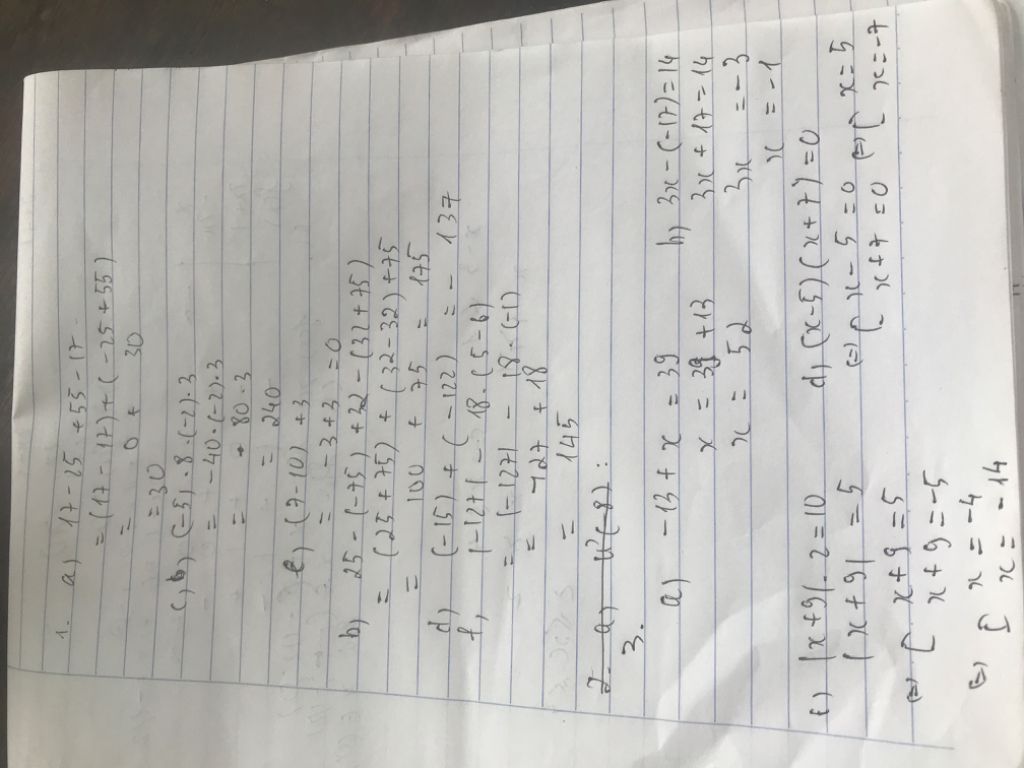 1. a) 17 - 25 + 55 - 17
= (17 - 17) + (-25 + 55)
= 0 + 30
= 30
c) (-5) . 8 . (-2) . 3
= -40 . (-2) . 3
= 80 . 3
= 240
e) (7 - 10) + 3
= -3 + 3 = 0
b) 25 - (-75) + 32 - (32 + 75)
= (25 + 75) + (32 - 32) + 75
= 100 + 75 = 175
d) (-15) + (-122) = - 137
f, |-127| - 18 . (5 - 6)
= |-127| - 18 . (-1)
= 127 + 18
= 145
3.
a) -13 + x = 39
x = 39 + 13
x = 52
b) 3x - (-17) = 14
3x + 17 = 14
3x = -3
x = -1
c) |x + 9| . 2 = 10
|x + 9| = 5
(=) [ x + 9 = 5
x + 9 = -5
(=) [ x = -4
x = -14
d, (x - 5) (x + 7) = 0
(=) [ x - 5 = 0 (=) [ x = 5
x + 7 = 0 x = -7